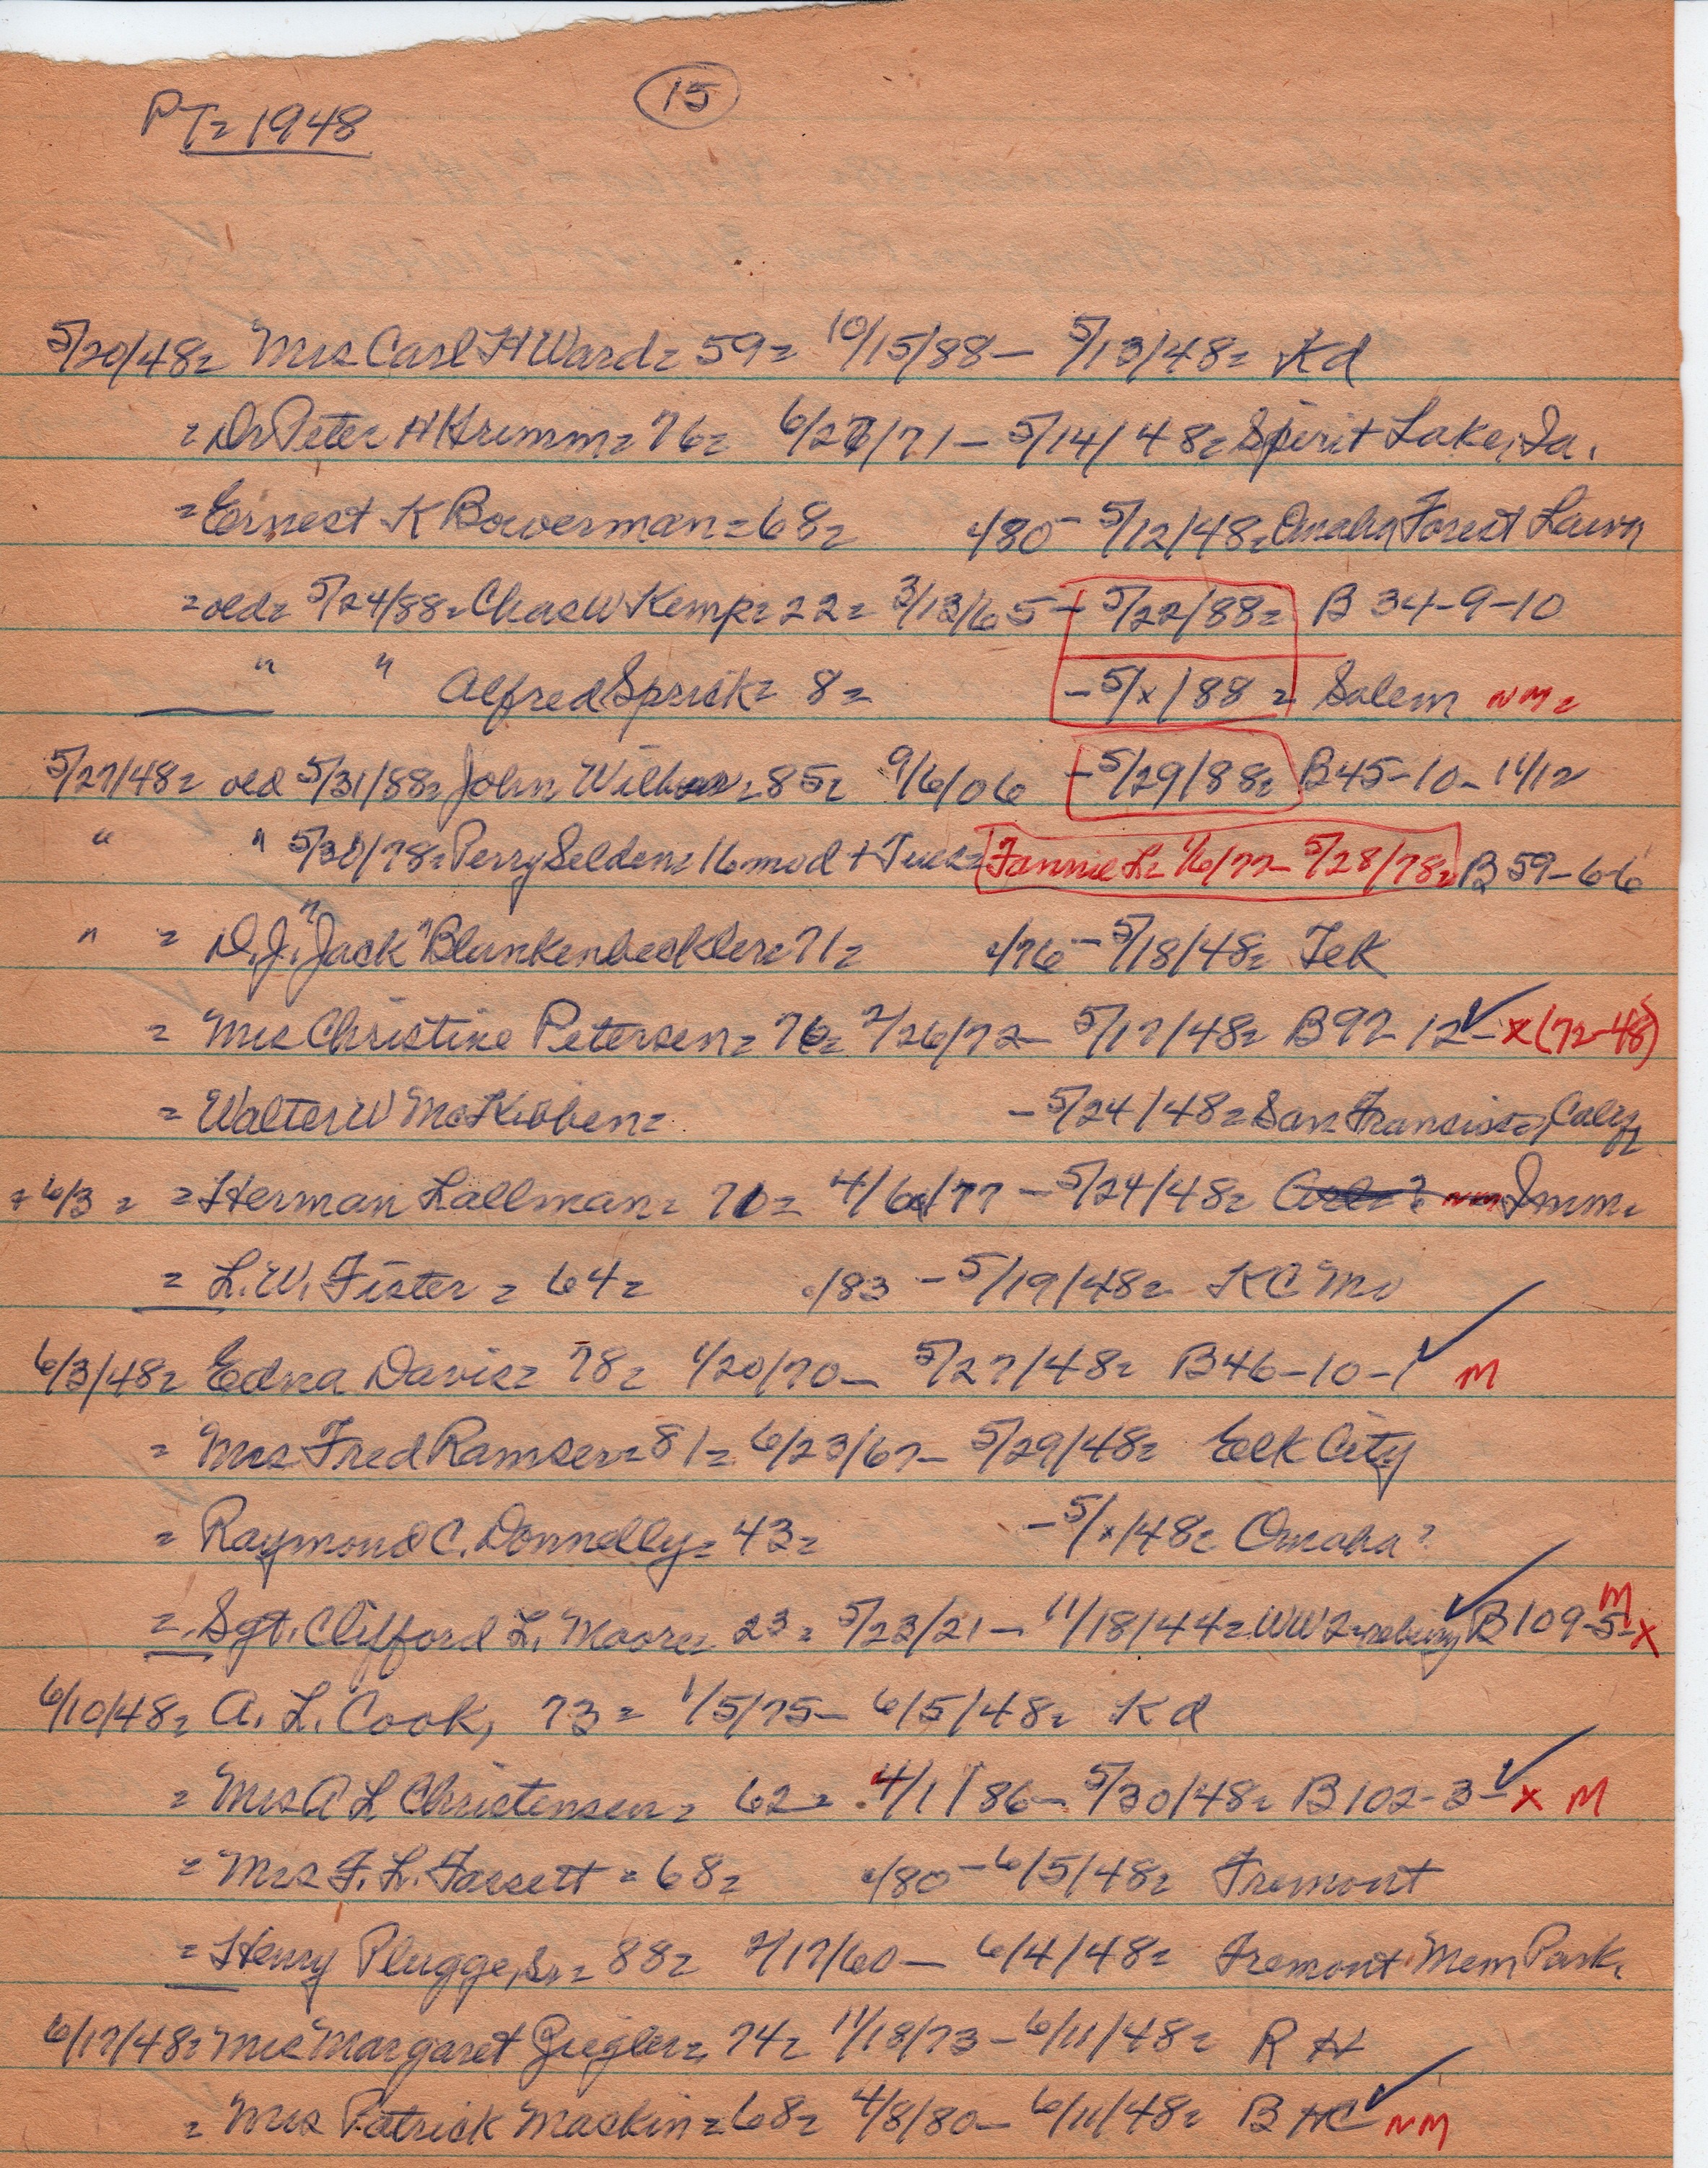 PT= 1948
15
5/20/48= Mrs Carl H Ward= 59= 10/15/88 – 5/13/48= Kd
= Dr Peter H Krimm= 76= 6/27/71 – 5/14/48= Spirit Lake, Ia.
= Ernest K Bowerman= 68= /80 – 5/12/48= Omaha Forest Lawn
= old= 5/24/88= Chas W Kemp= 22= 3/13/65 – 5/22/88= B 34-9-10
" " Alfred Sprick= 8= – 5/x/88= Salem NM=
5/27/48= old 5/31/88= John Wilbur= 85= 9/6/06 – 5/29/88= B45-10-11/12
" " 5/30/78= Perry Selden= 16 mo d + Tues= Fannie L= 1/6/77 – 5/28/78= B 59-6-6
" = D.J. "Jack" Blankenbeckler= 71= /76 – 5/18/48= Tek
= Mrs Christine Petersen= 76= 2/26/72 – 5/17/48= B 97-12 ✓ – x (72-48)
= Walter W McKibben= – 5/24/48= San Fransisco, Calif
= 6/3 = = Herman Lallman= 71= 4/6/77 – 5/24/48= NM Imm.
= L.W. Fister = 64= /83 – 5/19/48= KC Mo
6/3/48= Edna Davis= 78= 1/20/70 – 5/27/48= B46-10-1 ✓ M
= Mrs Fred Ramser= 81= 6/23/67 – 5/29/48= Elk City
= Raymond C. Donnelly= 43= – 5/x/48= Omaha?
= Sgt. Clifford L. Moore= 23= 5/23/21 – 11/18/44= WW2 = reburry ✓ B 109-5-x M
6/10/48= A. L. Cook, 73= 1/5/75 – 6/5/48= Kd
= Mrs A L Christensen= 62= 4/1/86 – 5/30/48= B 102-3 ✓ – x M
= Mrs F. L. Fassett = 68= /80 – 6/5/48= Fremont
= Henry Plugge, Sr= 88= 2/17/60 – 6/4/48= Fremont Mem Park.
6/17/48= Mrs Margaret Ziegler= 74= 11/18/73 – 6/11/48= R H
= Mrs Patrick Mackin= 68= 4/8/80 – 6/11/48= B HC ✓ NM